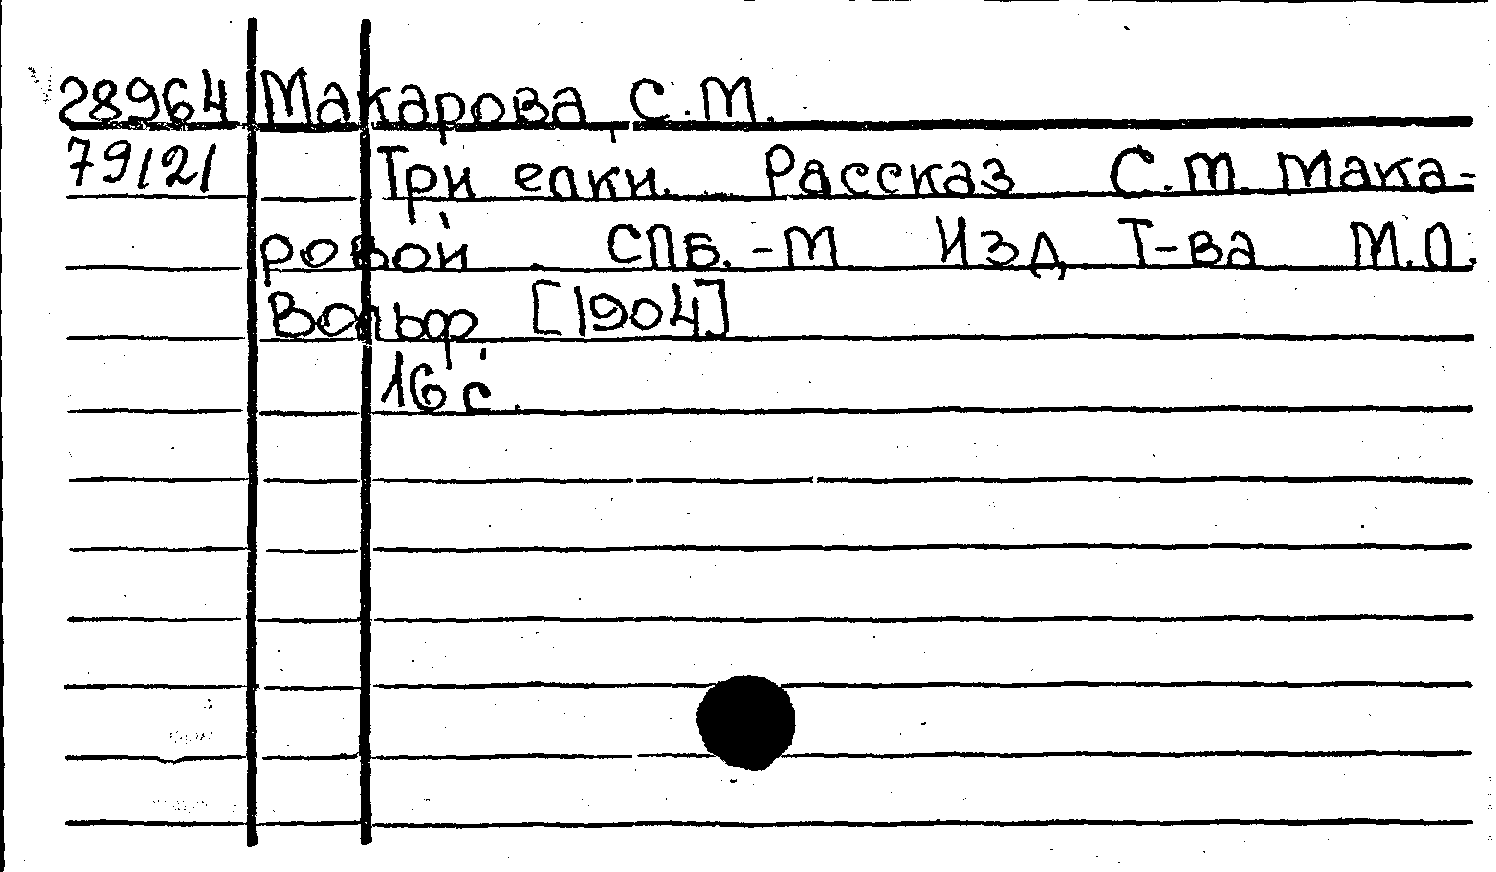 28964 Макарова, С.М.
79/21 Три елки. Рассказ С.М. Мака-
ровой. СПб.-М Изд Т-ва М.О.
Вольф, [1904].
16 с.